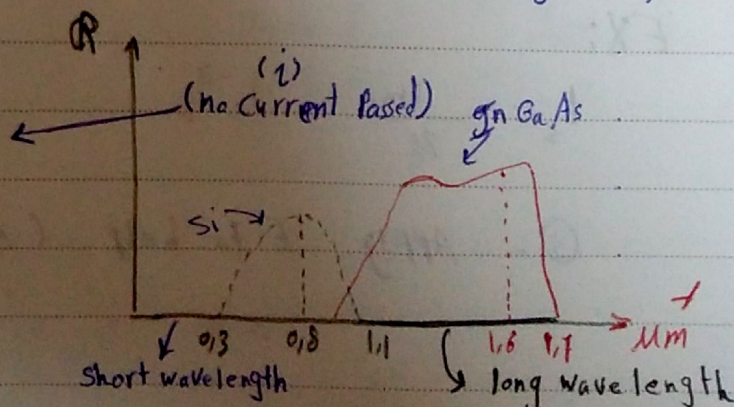 R
(i)
(no current Passed)
In Ga As
Si
0,3 0,8 1,1 1,6 1,7 μm
short wavelength
long wavelength